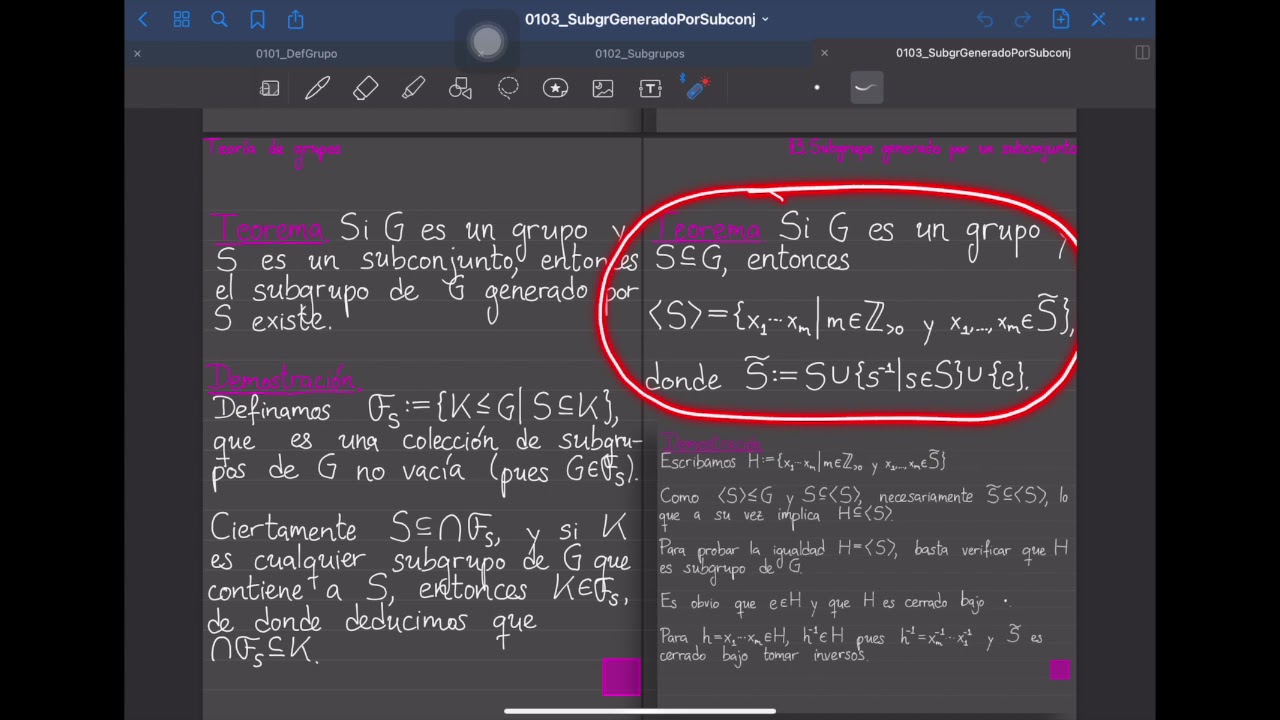 0103_SubgrGeneradoPorSubconj
0101_DefGrupo
0102_Subgrupos
0103_SubgrGeneradoPorSubconj
Teoría de grupos
Teorema Si G es un grupo y
S es un subconjunto, entonces
el subgrupo de G generado por
S existe.
Demostración
Definamos 𝓕ₛ:={K≤G| S⊆K},
que es una colección de subgru-
pos de G no vacía (pues G∈𝓕ₛ).
Ciertamente S⊆∩𝓕ₛ, y si K
es cualquier subgrupo de G que
contiene a S, entonces K∈𝓕ₛ,
de donde deducimos que
∩𝓕ₛ⊆K.
Subgrupo generado por un subconjunto
Teorema Si G es un grupo y
S⊆G, entonces
⟨S⟩={x₁⋯xₘ|m∈ℤ>₀ y x₁,...,xₘ∈S̃},
donde S̃:=S∪{s⁻¹|s∈S}∪{e}.
Demostración
Escribamos H:={x₁⋯xₘ|m∈ℤ>₀ y x₁,...,xₘ∈S̃}
Como ⟨S⟩≤G y S⊆⟨S⟩, necesariamente S̃⊆⟨S⟩, lo
que a su vez implica H⊆⟨S⟩.
Para probar la igualdad H=⟨S⟩, basta verificar que H
es subgrupo de G.
Es obvio que e∈H y que H es cerrado bajo ·.
Para h=x₁⋯xₘ∈H, h⁻¹∈H pues h⁻¹=xₘ⁻¹⋯x₁⁻¹ y S̃ es
cerrado bajo tomar inversos.